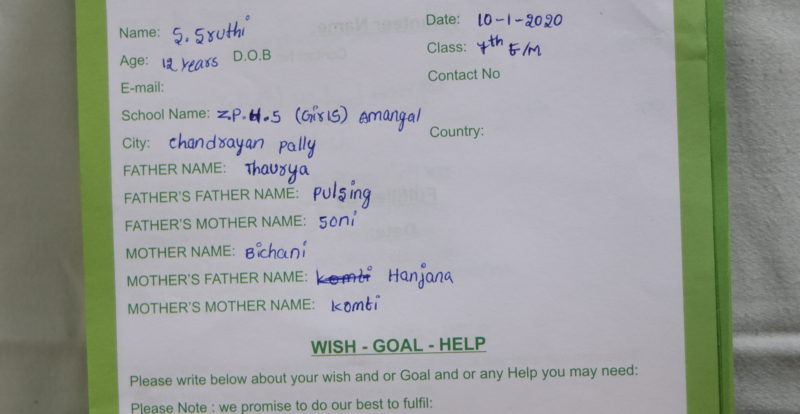 Name: S. Sruthi Date: 10-1-2020
Age: 12 Years D.O.B Class: 7th E/M
E-mail: Contact No
School Name: Z.P.H.S (GirlS) Amangal
City: Chandrayan Pally Country:
FATHER NAME: Thaurya
FATHER'S FATHER NAME: Pulsing
FATHER'S MOTHER NAME: Soni
MOTHER NAME: Bichani
MOTHER'S FATHER NAME: Komti Hanjana
MOTHER'S MOTHER NAME: Komti
WISH - GOAL - HELP
Please write below about your wish and or Goal and or any Help you may need:
Please Note : we promise to do our best to fulfil: